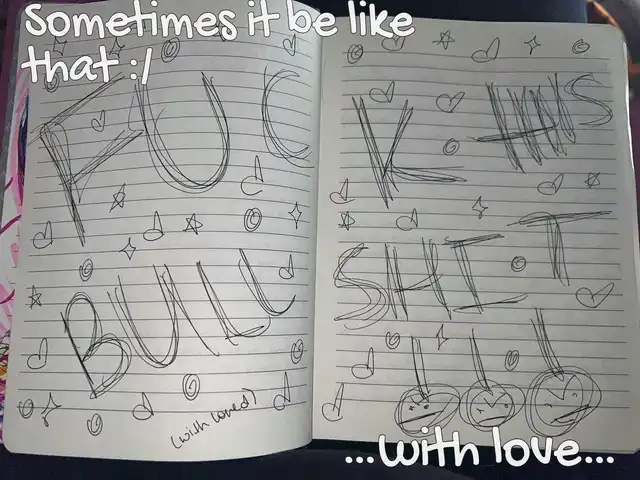 Sometimes it be like
that :/
FUCK THIS
BULLSHIT
(with love♡)
...with love...